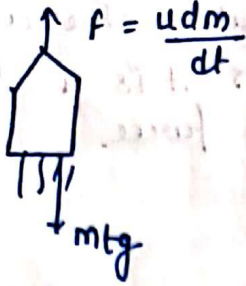 F = udm/dt
mtg